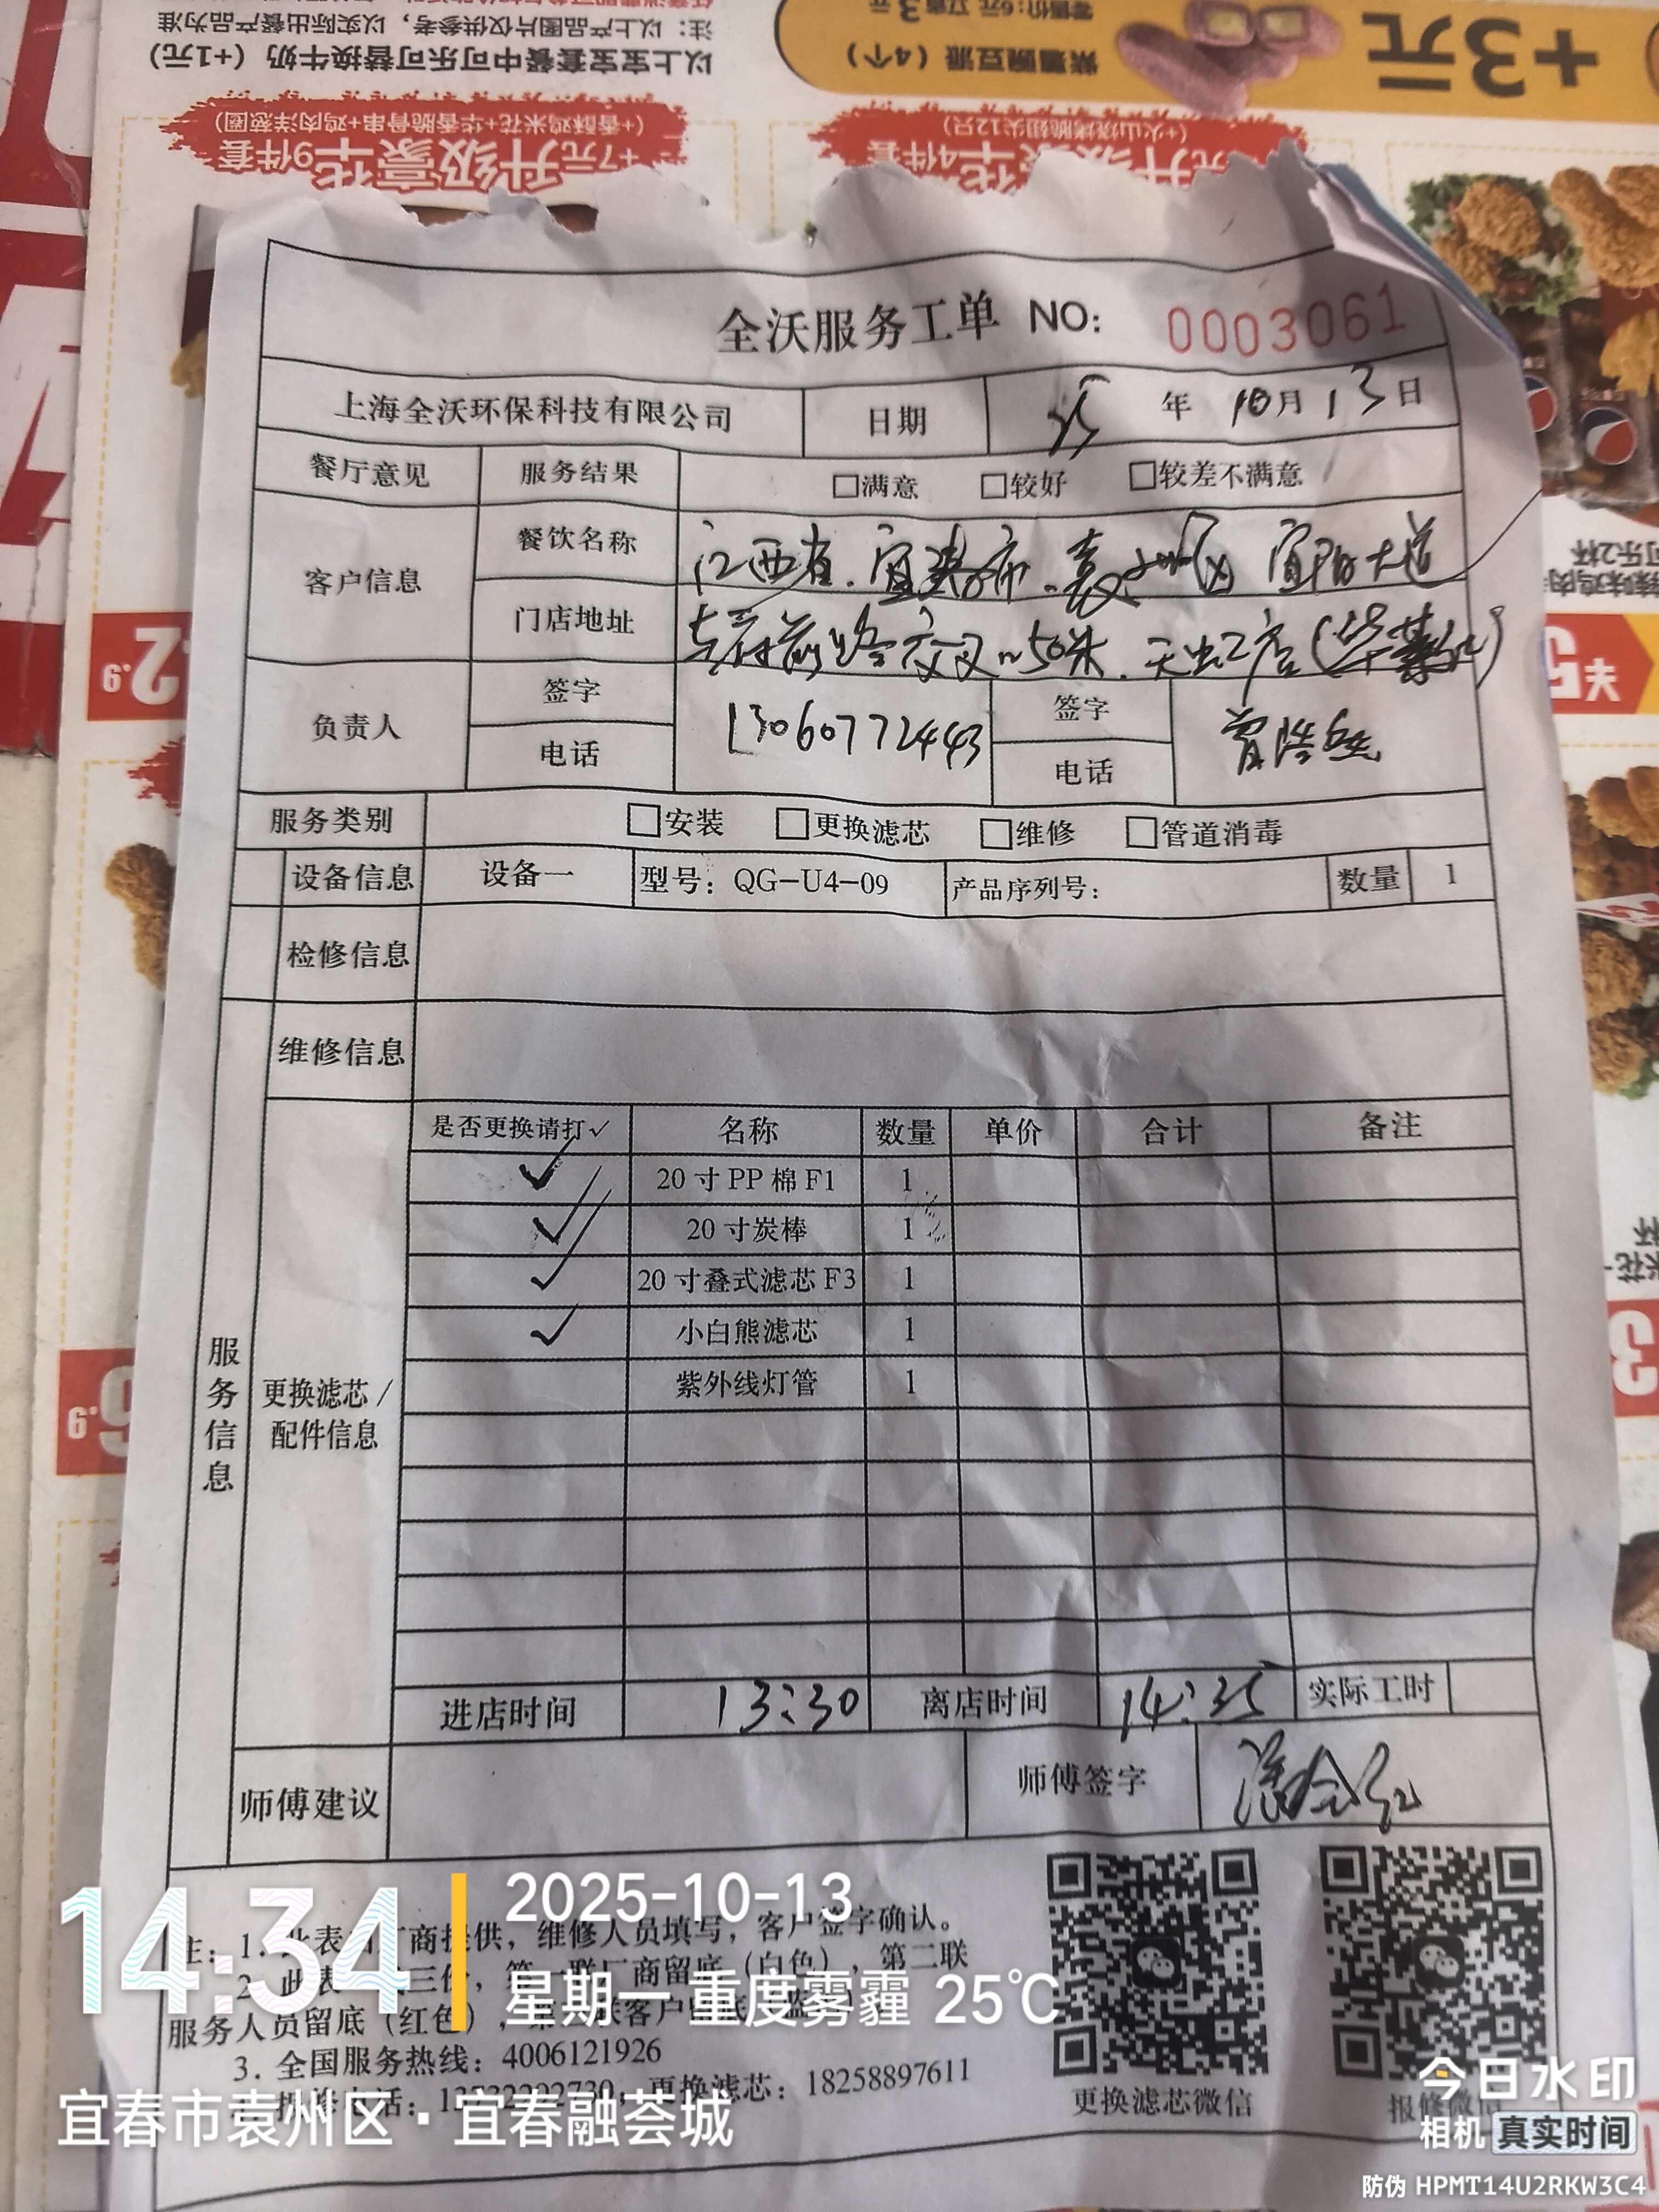 以上宝宝套餐中可乐可替换牛奶（+1元）
注：以上产品图片仅供参考，以实际出餐产品为准
+3元
紫薯豌豆派（4个）
+7元升级豪华9件套
(+香酥鸡米花+华香脆骨串+鸡肉洋葱圈)
全沃服务工单 NO: 0003061
上海全沃环保科技有限公司 日期 25 年 10月 13日
餐厅意见 服务结果 □满意 □较好 □较差不满意
客户信息
餐饮名称 江西省.宜春市.袁州区 宜阳大道
门店地址 与府前路交叉口50米.天虹店(华莱士)
负责人 签字 电话 13060772443 签字 电话
服务类别 □安装 □更换滤芯 □维修 □管道消毒
设备信息 设备一 型号：QG-U4-09 产品序列号： 数量 1
检修信息
维修信息
服务信息
更换滤芯/配件信息
是否更换请打✓ 名称 数量 单价 合计 备注
✓ 20寸PP棉F1 1
✓ 20寸炭棒 1
✓ 20寸叠式滤芯F3 1
✓ 小白熊滤芯 1
紫外线灯管 1
进店时间 13:30 离店时间 14:35 实际工时
师傅建议 师傅签字
注：1. 此表由厂商提供，维修人员填写，客户签字确认。
2. 此表 三份，第一联厂商留底（白色），第二联
服务人员留底（红色），
3. 全国服务热线：4006121926
更换滤芯：18258897611
更换滤芯微信
报修微信
14:34
2025-10-13
星期一 重度雾霾 25℃
宜春市袁州区·宜春融荟城
今日水印
相机 真实时间
防伪 HPMT14U2RKW3C4